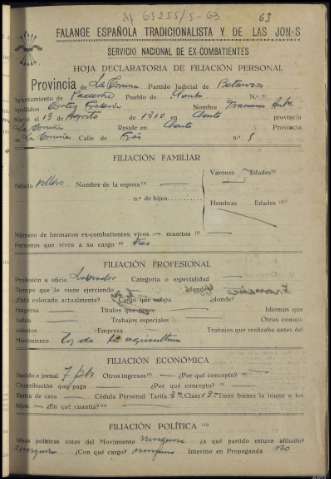 63
FALANGE ESPAÑOLA TRADICIONALISTA Y DE LAS JON-S
SERVICIO NACIONAL DE EX-COMBATIENTES
HOJA DECLARATORIA DE FILIACIÓN PERSONAL
Provincia de La Coruña Partido Judicial de Betanzos
Ayuntamiento de Pueblo de N.º
Apellidos Nombre
Nació el 13 Agosto de 1910 en provincia
La Coruña Reside en Provincia
La Coruña Calle de n.º 5
FILIACIÓN FAMILIAR
Estado soltero Nombre de la esposa Varones Edades
n.º de hijos Hembras Edades
Número de hermanos ex-combatientes vivos muertos
Personas que viven a su cargo tres
FILIACIÓN PROFESIONAL
Profesión u oficio Labrador Categoría o especialidad
Tiempo que la viene ejerciendo
¿Está colocado actualmente? ¿En qué trabaja ¿dónde?
Ninguna Títulos que posee Idiomas que
habla Trabajos especiales Otros conoci-
mientos Empresa Trabajos que realizaba antes del
Movimiento Los de la agricultura
FILIACIÓN ECONÓMICA
Sueldo o jornal 7 pts Otros ingresos ¿Por qué concepto?
Contribución que paga ¿Por qué concepto?
Renta de casa Cédula Personal Tarifa Clase Tiene bienes la mujer o los
hijos ¿En qué cuantía?
FILIACIÓN POLÍTICA
Ideas políticas antes del Movimiento ninguna ¿A qué partido estuvo afiliado?
ninguno ¿Con qué cargo? ninguno Intervino en Propaganda no